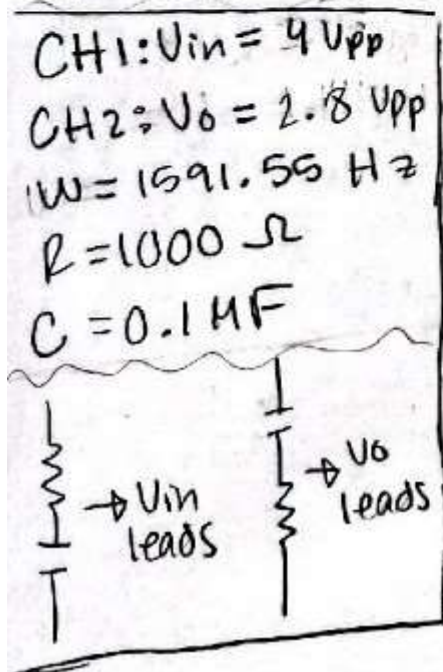 CH1: Vin = 4 Vpp
CH2: Vo = 2.8 Vpp
W = 1591.55 Hz
R = 1000 Ω
C = 0.1 MF
→ Vin leads
→ Vo leads